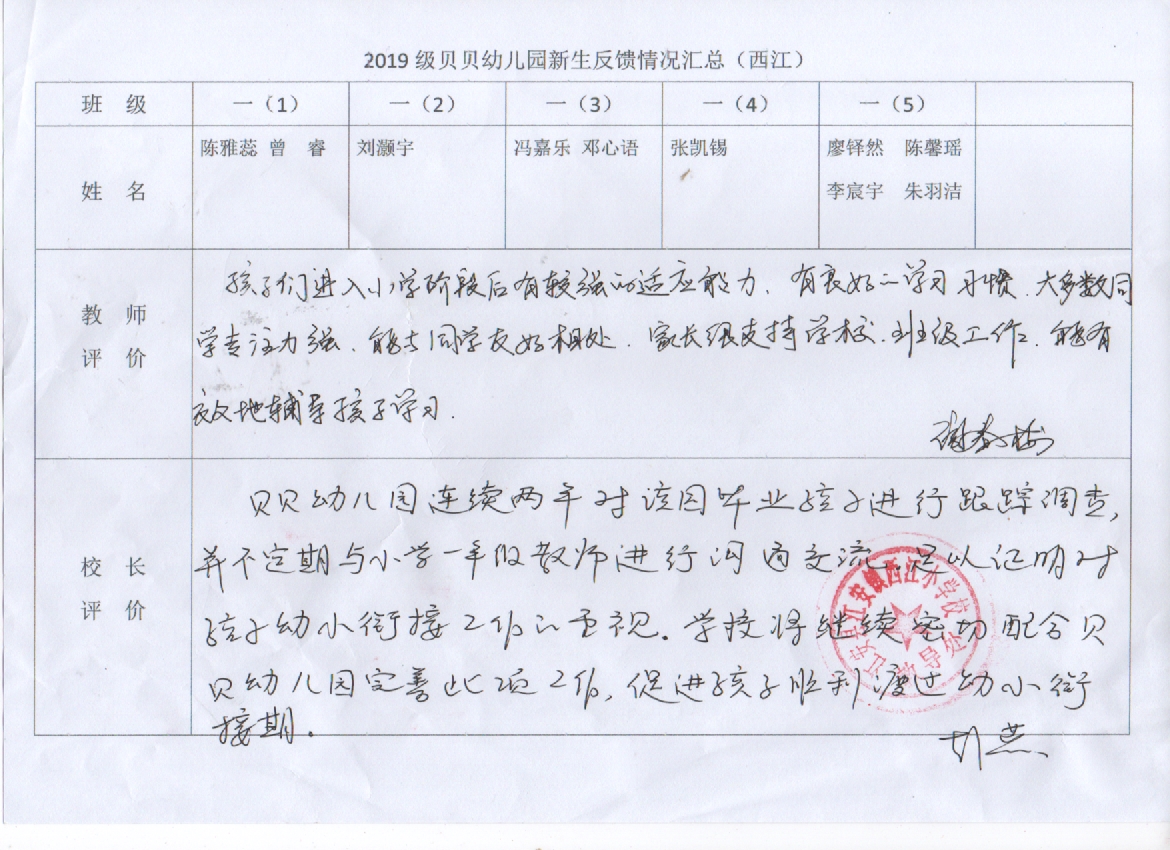 2019 级贝贝幼儿园新生反馈情况汇总（西江）
班 级 一（1） 一（2） 一（3） 一（4） 一（5）
姓 名 陈雅蕊 曾 睿 刘灏宇 冯嘉乐 邓心语 张凯锡 廖铎然 陈馨瑶
李宸宇 朱羽洁
教 师
评 价
孩子们进入小学阶段后有较强的适应能力、有良好的学习习惯、大多数同
学专注力强、能与同学友好相处、家长很支持学校、班级工作、能有
效地辅导孩子学习.
校 长
评 价
贝贝幼儿园连续两年对该园毕业孩子进行跟踪调查,
并不定期与小学一年级教师进行沟通交流.足以证明对
孩子幼小衔接工作的重视。学校将继续密切配合贝
贝幼儿园完善此项工作,促进孩子顺利渡过幼小衔
接期.
江安县江安镇西江小学校
教导处
胡燕